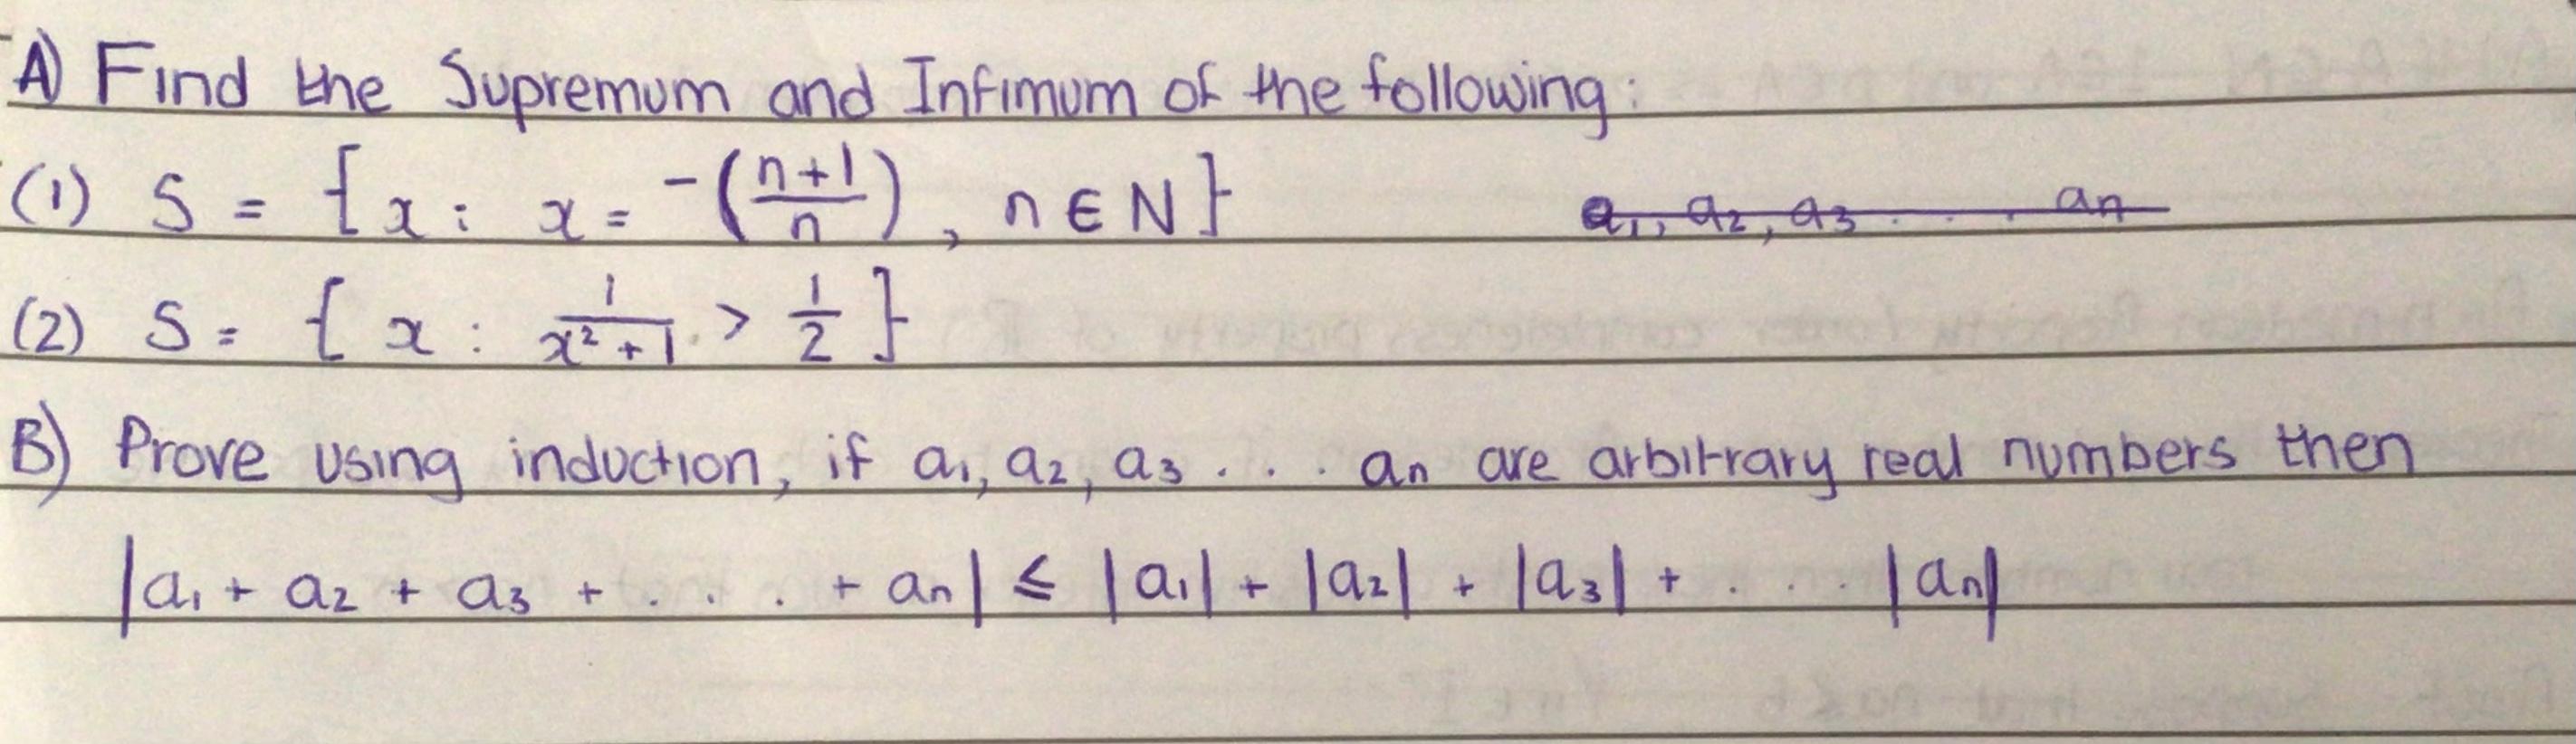 A) Find the Supremum and Infimum of the following:
(1) S = {x : x = -(n+1/n), n ∈ N}
a1, a2, a3 . . . an
(2) S = {x : 1/x²+1 > 1/2}
B) Prove using induction, if a1, a2, a3 . . . an are arbitrary real numbers then
|a1 + a2 + a3 + . . . + an| ≤ |a1| + |a2| + |a3| + . . . |an|